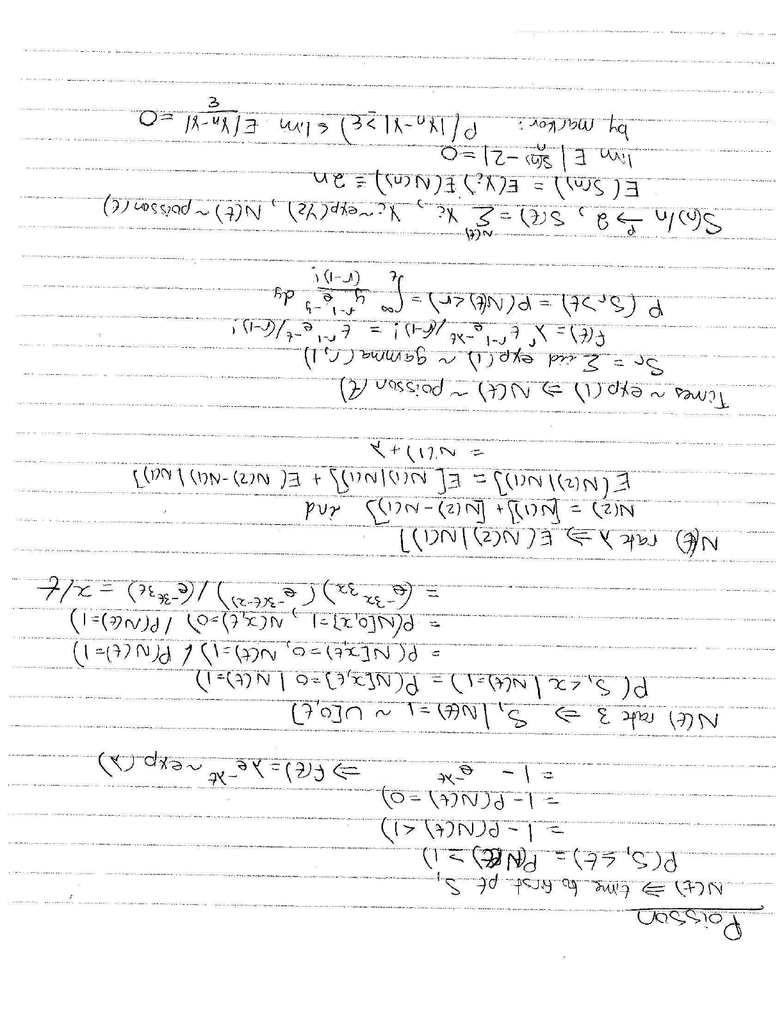 Poisson
N(t) ⇒ time to first pt S₁
P(S₁ ≤ t) = P(N(t) ≥ 1)
= 1 - P(N(t) < 1)
= 1 - P(N(t) = 0)
= 1 - e^{-λt} ⇒ f(t) = λe^{-λt} ~ exp(λ)
N(t) rate 3 ⇒ S₁|N(t)=1 ~ U[0,t]
P(S₁<x|N(t)=1) = P(N[x,t]=0|N(t)=1)
= P(N[x,t)=0, N(t)=1) / P(N(t)=1)
= P(N[0,x]=1, N(x,t)=0) / P(N(t)=1)
= (e^{-3x} 3x)(e^{-3(t-x)}) / (e^{-3t} 3t) = x/t
N(t) rate λ ⇒ E(N(2)|N(1)]
N(2) = [N(1)] + [N(2)-N(1)] ind
E(N(2)|N(1)] = E[N(1)|N(1)] + E(N(2)-N(1)|N(1)]
= N(1) + λ
Times ~ exp(1) ⇒ N(t) ~ poisson(t)
Sr = Σ iid exp(1) ~ gamma(r,1)
f(t) = λ^r t^{r-1} e^{-λt}/(r-1)! = t^{r-1} e^{-t}/(r-1)!
P(Sr>t) = P(N(t)<r) = ∫_t^∞ y^{r-1} e^{-y}/(r-1)! dy
S(n)/n →^p 2, S(t) = Σ^{N(t)} Yi, Yi ~ exp(1/2), N(t) ~ poisson(t)
E(S(n)) = E(Yi) E(N(n)) = 2n
lim E|S(n)/n - 2| = 0
by markov: P(|Xn-X|>ε) ≤ lim E|Xn-X|/ε = 0